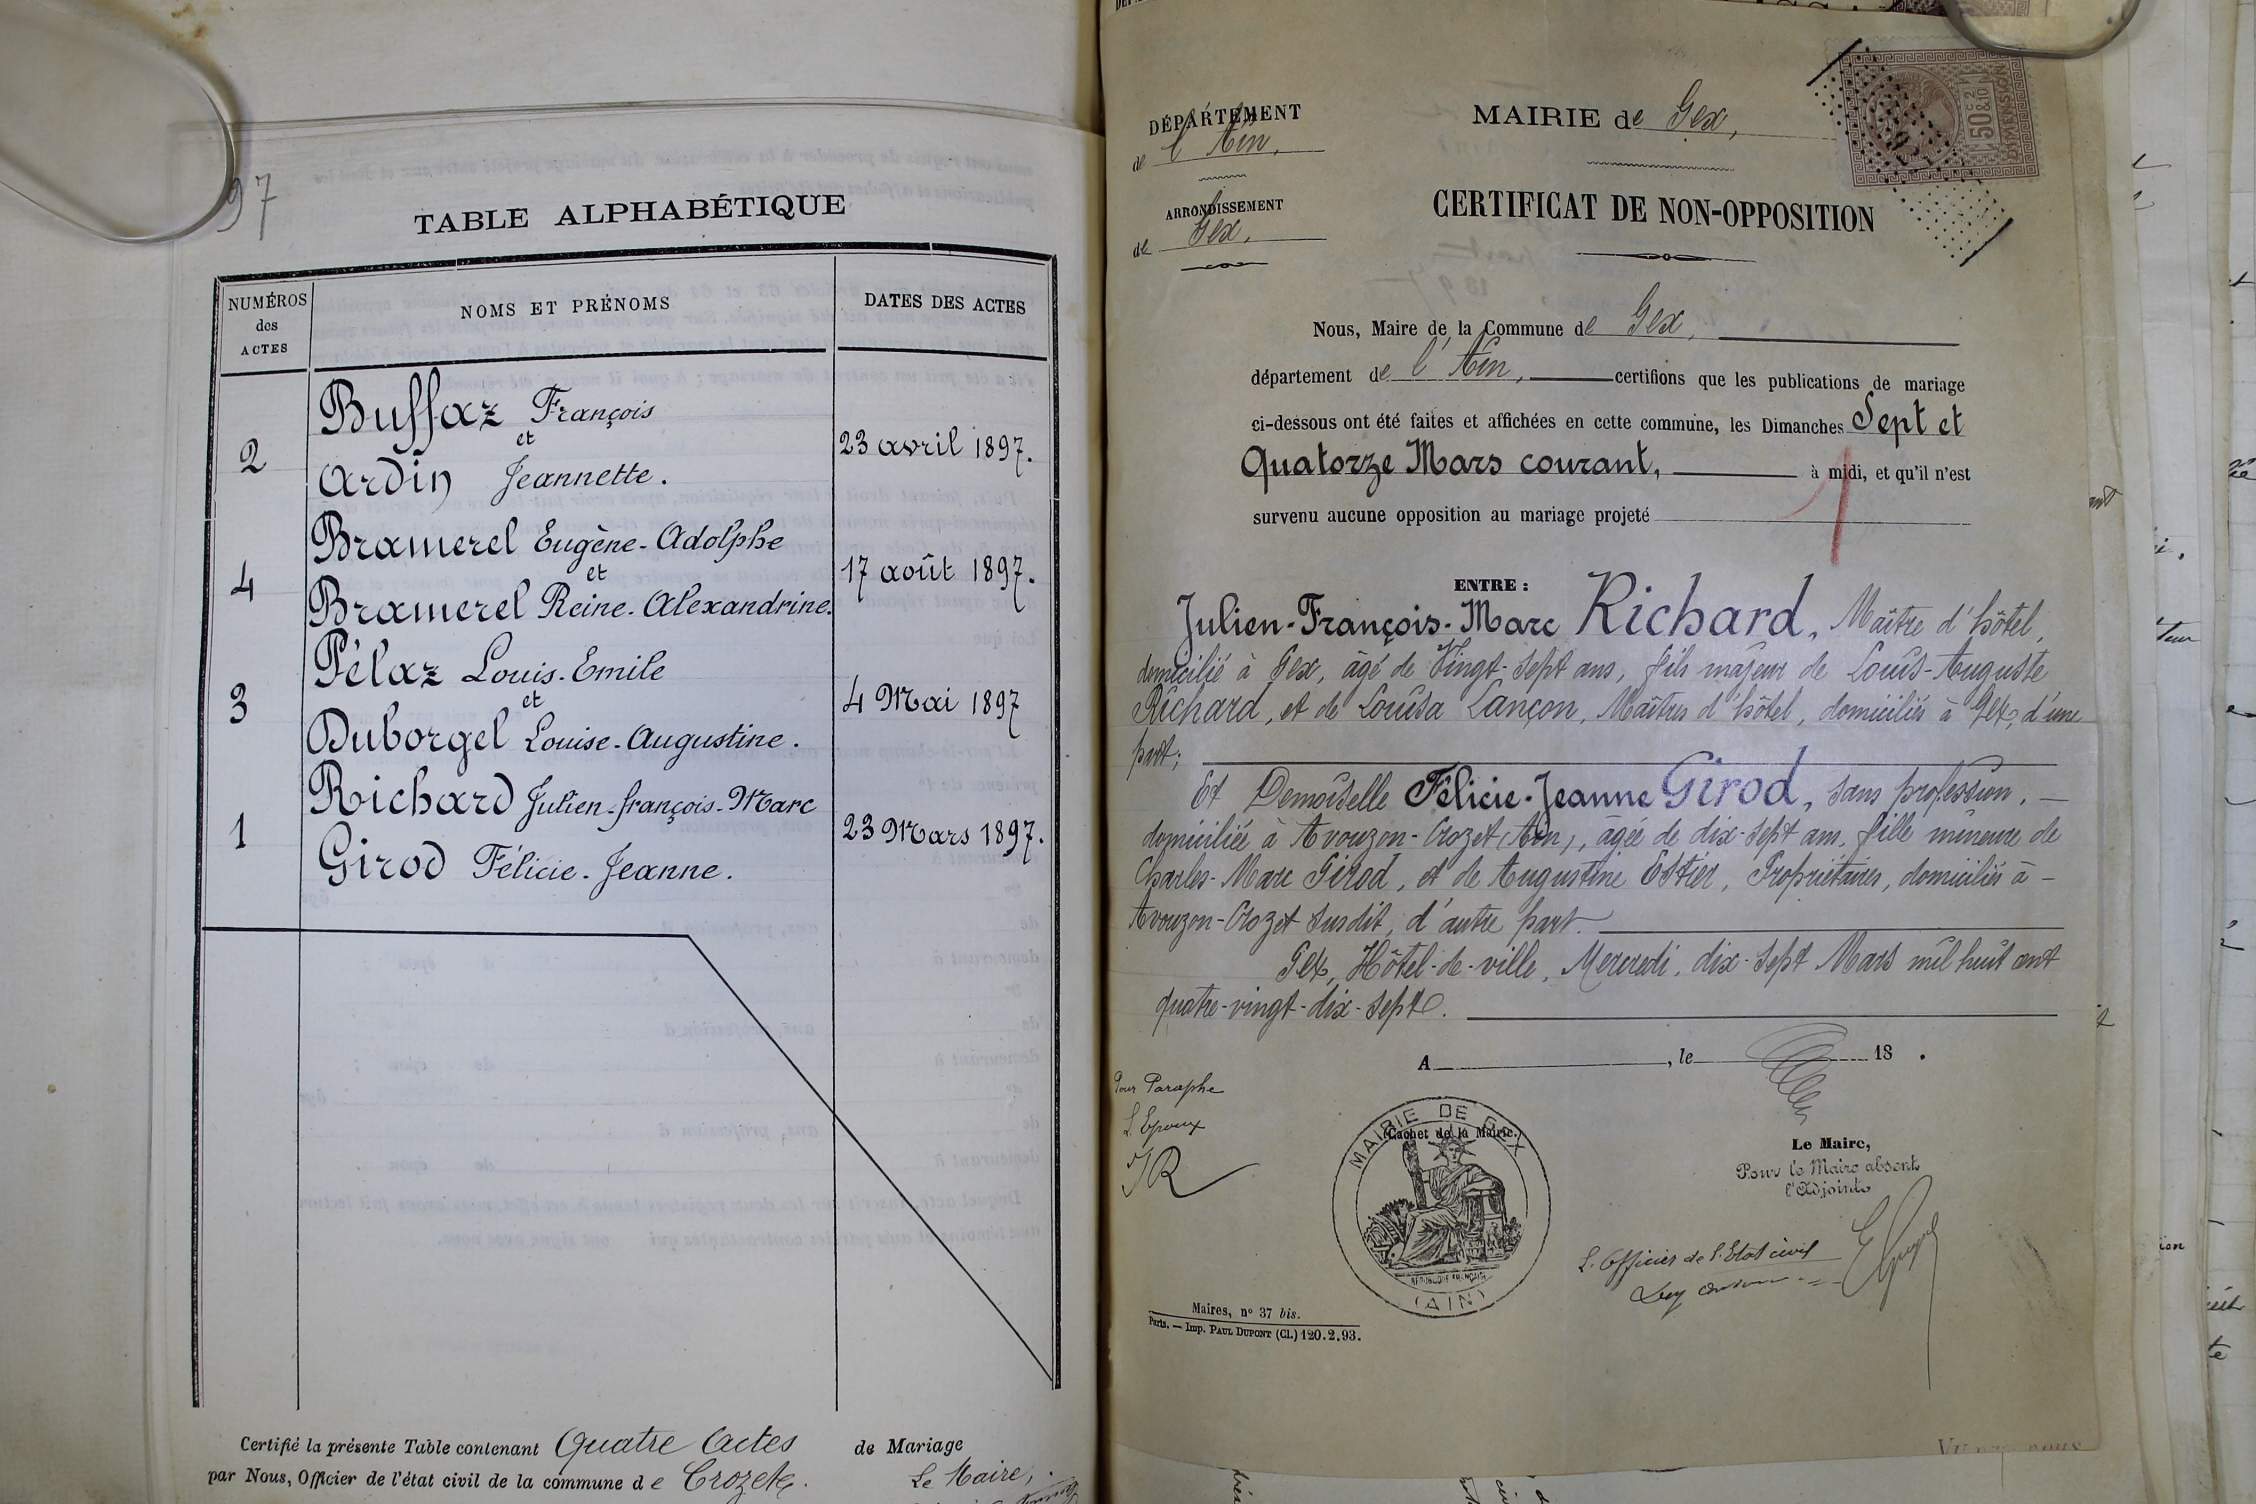 97
TABLE ALPHABÉTIQUE
NUMÉROS des ACTES
NOMS ET PRÉNOMS
DATES DES ACTES
Buffaz François
et
2
23 avril 1897.
Ardin Jeannette.
Bramerel Eugène-Adolphe
et
4
17 août 1897.
Bramerel Reine-Alexandrine.
Pélaz Louis-Emile
et
3
4 Mai 1897
Duborgel Louise-Augustine.
Richard Julien-françois-Marc
1
23 Mars 1897.
Girod Félicie-Jeanne.
Certifié la présente Table contenant Quatre Actes de Mariage
par Nous, Officier de l'état civil de la commune de Crozet.
Le Maire,
DÉPARTEMENT
de l'Ain.
ARRONDISSEMENT
de Gex.
MAIRIE de Gex,
CERTIFICAT DE NON-OPPOSITION
50c 2/10
DIMENSION
Nous, Maire de la Commune de Gex,
département de l'Ain, certifions que les publications de mariage
ci-dessous ont été faites et affichées en cette commune, les Dimanches Sept et
Quatorze Mars courant, à midi, et qu'il n'est
survenu aucune opposition au mariage projeté
ENTRE :
Julien-François-Marc Richard, Maître d'hôtel,
domicilié à Gex, âgé de Vingt-sept ans, fils majeur de Louis-Auguste
Richard, et de Louisa Lançon, Maîtres d'hôtel, domiciliés à Gex, d'une
part;
Et Demoiselle Félicie-Jeanne Girod, sans profession,
domiciliée à Avouzon-Crozet (Ain), âgée de dix-sept ans, fille mineure de
Charles-Marc Girod, et de Augustine Estier, Propriétaires, domiciliés à
Avouzon-Crozet susdit, d'autre part.
Gex, Hôtel-de-ville, Mercredi, dix-sept Mars mil huit cent
quatre-vingt-dix-sept.
A , le 18 .
Pour Paraphe
L'Epoux
JR
MAIRIE DE GEX
(Cachet de la Mairie.)
RÉPUBLIQUE FRANÇAISE
(AIN)
Le Maire,
Pour le Maire absent
l'Adjoint
L'Officier de l'Etat civil
Maires, n° 37 bis.
Paris. — Imp. PAUL DUPONT (Cl.) 120.2.93.